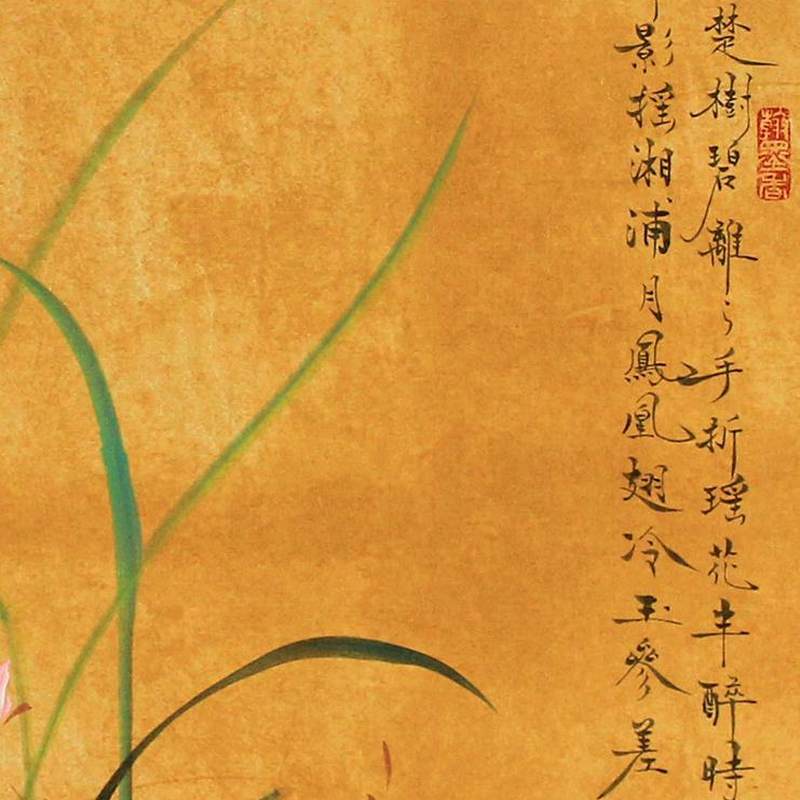 楚樹碧離々手折瑶花半醉時
影摇湘浦月鳳凰翅冷玉參差